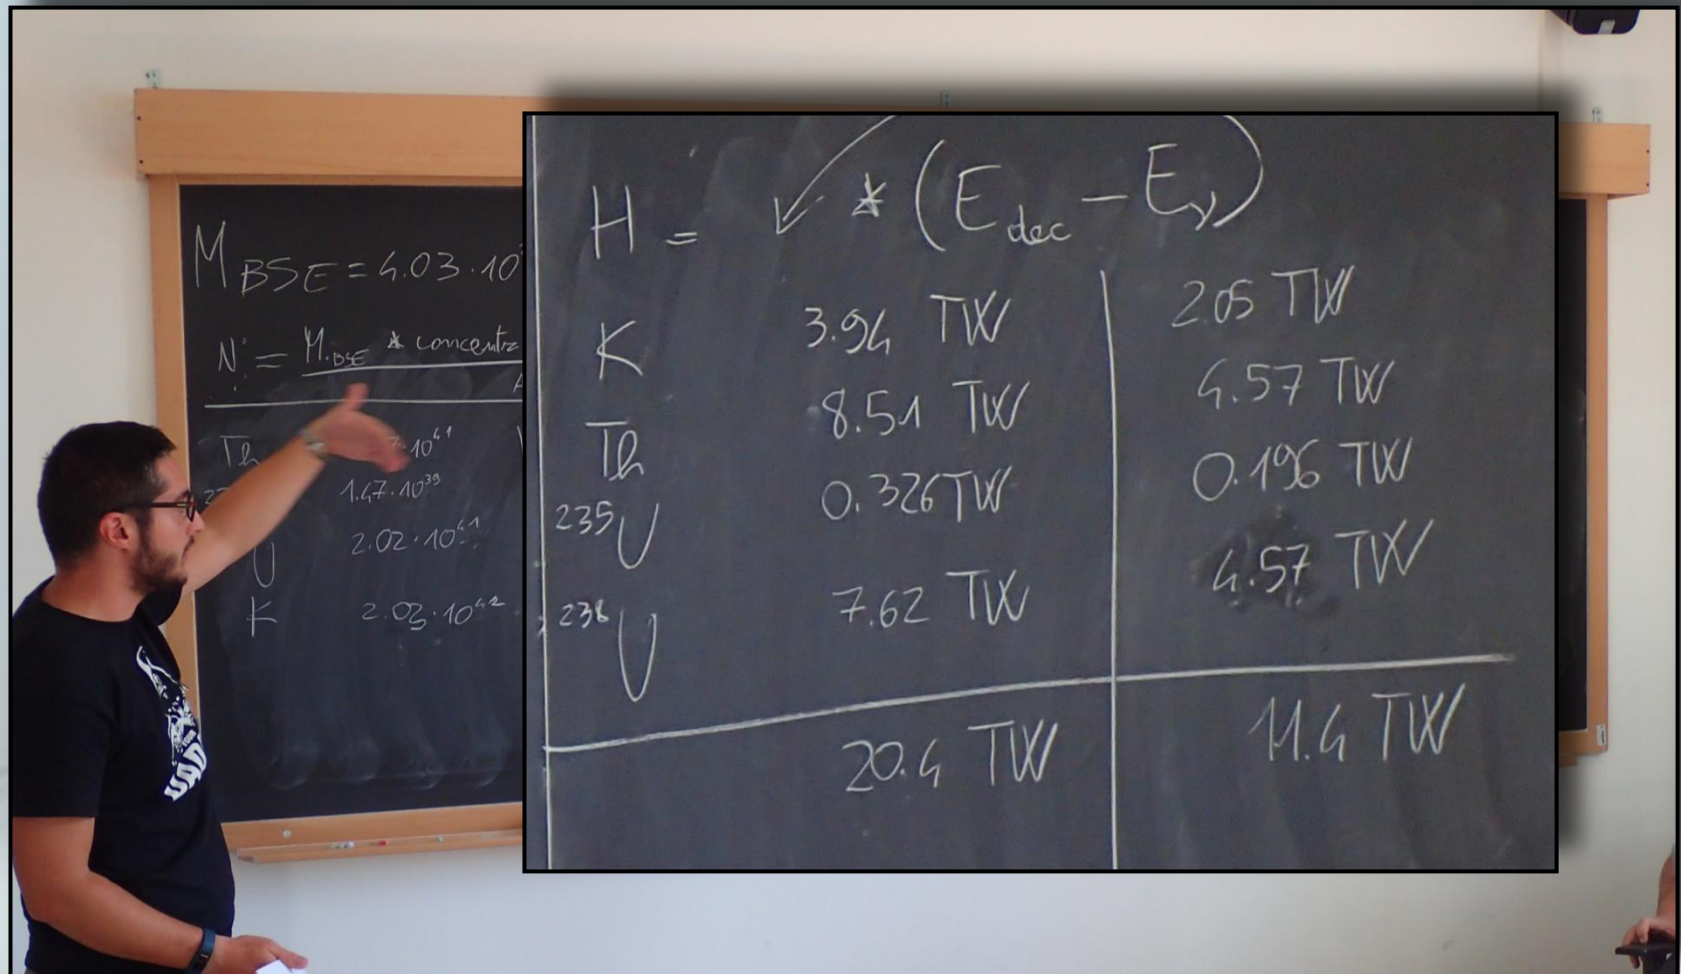 M BSE = 4.03 · 10
N = M BSE * concentr
Th 10⁴¹
1.47 · 10³⁹
U 2.02 · 10⁴¹
K 2.03 · 10⁴²
H = ↙ * (E dec − E ν)
K 3.94 TW 2.05 TW
Th 8.51 TW 4.57 TW
²³⁵U 0.326 TW 0.196 TW
²³⁸U 7.62 TW 4.57 TW
20.4 TW 11.4 TW